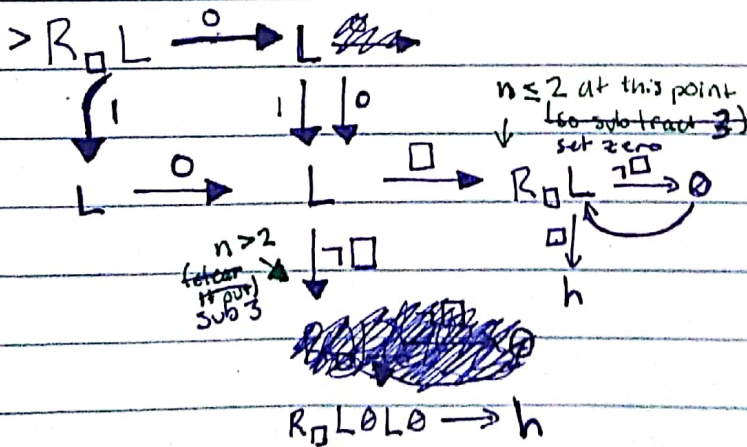 > R□L 0 L
1 1 0
n ≤ 2 at this point
(so subtract 3)
set zero
L 0 L □ R□L ¬□ 0
n > 2
¬□ □
sub 3
h
R□L0L0 → h